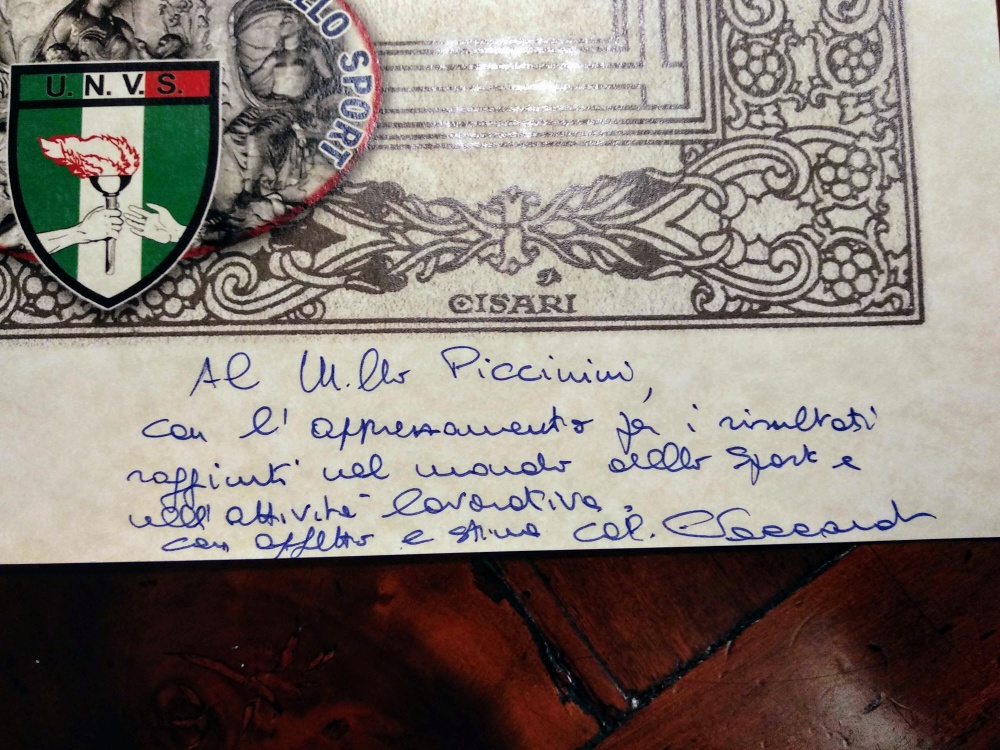 ELLO SPORT
U. N. V. S.
CISARI
Al M.llo Piccinini,
con l'apprezzamento per i risultati
raggiunti nel mondo dello sport e
nell'attività lavorativa.
con affetto e stima Col.